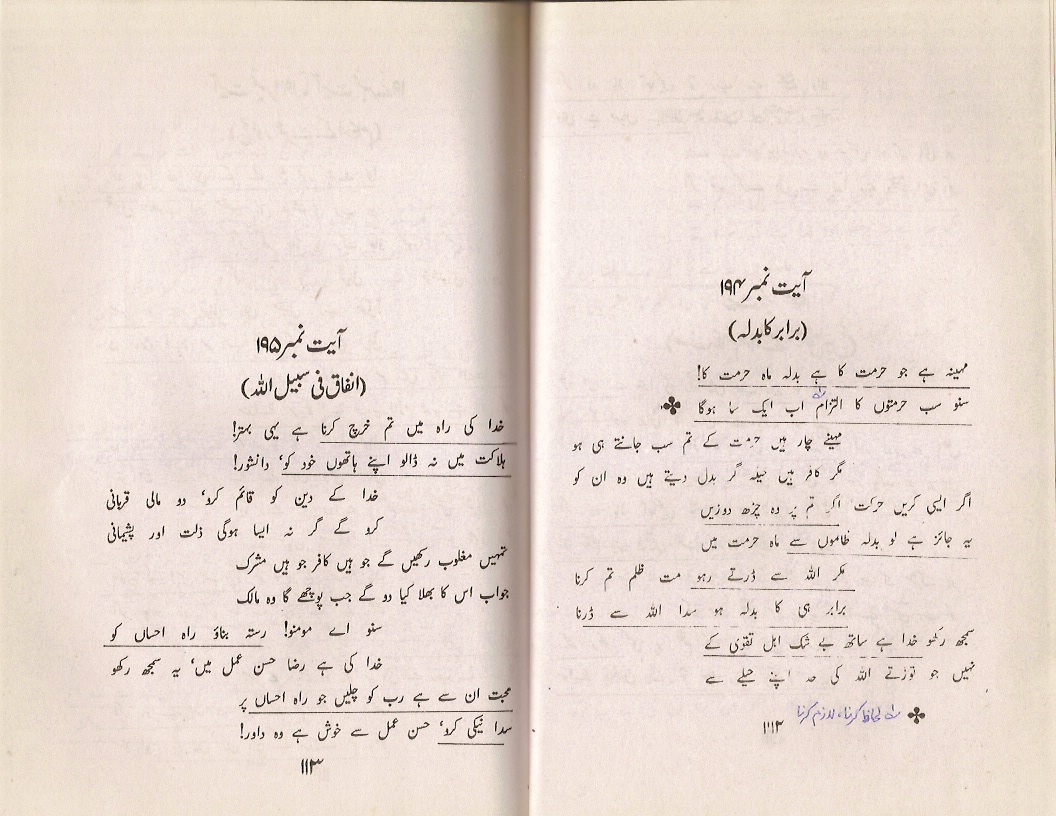 آیت نمبر ۱۹۴
(برابر کا بدلہ)
مہینہ ہے جو حرمت کا ہے بدلہ ماہ حرمت کا!
سنو سب حرمتوں کا التزام اب ایک سا ہوگا
مہینے چار ہیں حرمت کے تم سب جانتے ہی ہو
مگر کافر ہیں حیلہ گر بدل دیتے ہیں وہ ان کو
اگر ایسی کریں حرکت اگر تم پر وہ چڑھ دوڑیں
یہ جائز ہے لو بدلہ ظالموں سے ماہ حرمت میں
مگر اللہ سے ڈرتے رہو مت ظلم تم کرنا
برابر ہی کا بدلہ ہو سدا اللہ سے ڈرنا
سمجھ رکھو خدا ہے ساتھ بے شک اہل تقویٰ کے
نہیں جو توڑتے اللہ کی حد اپنے حیلے سے
لحاظ کرنا، لازم کرنا
۱۱۲
آیت نمبر ۱۹۵
(انفاق فی سبیل اللہ)
خدا کی راہ میں تم خرچ کرنا ہے یہی بہتر!
ہلاکت میں نہ ڈالو اپنے ہاتھوں خود کو، دانشور!
خدا کے دین کو قائم کرو، دو مالی قربانی
کرو گے گر نہ ایسا ہوگی ذلت اور پشیمانی
تمہیں مغلوب رکھیں گے جو ہیں کافر جو ہیں مشرک
جواب اس کا بھلا کیا دو گے جب پوچھے گا وہ مالک
سنو اے مومنو! رستہ بناؤ راہ احساں کو
خدا کی ہے رضا حسن عمل میں، یہ سمجھ رکھو
محبت ان سے ہے رب کو چلیں جو راہ احساں پر
سدا نیکی کرو، حسن عمل سے خوش ہے وہ داور!
۱۱۳